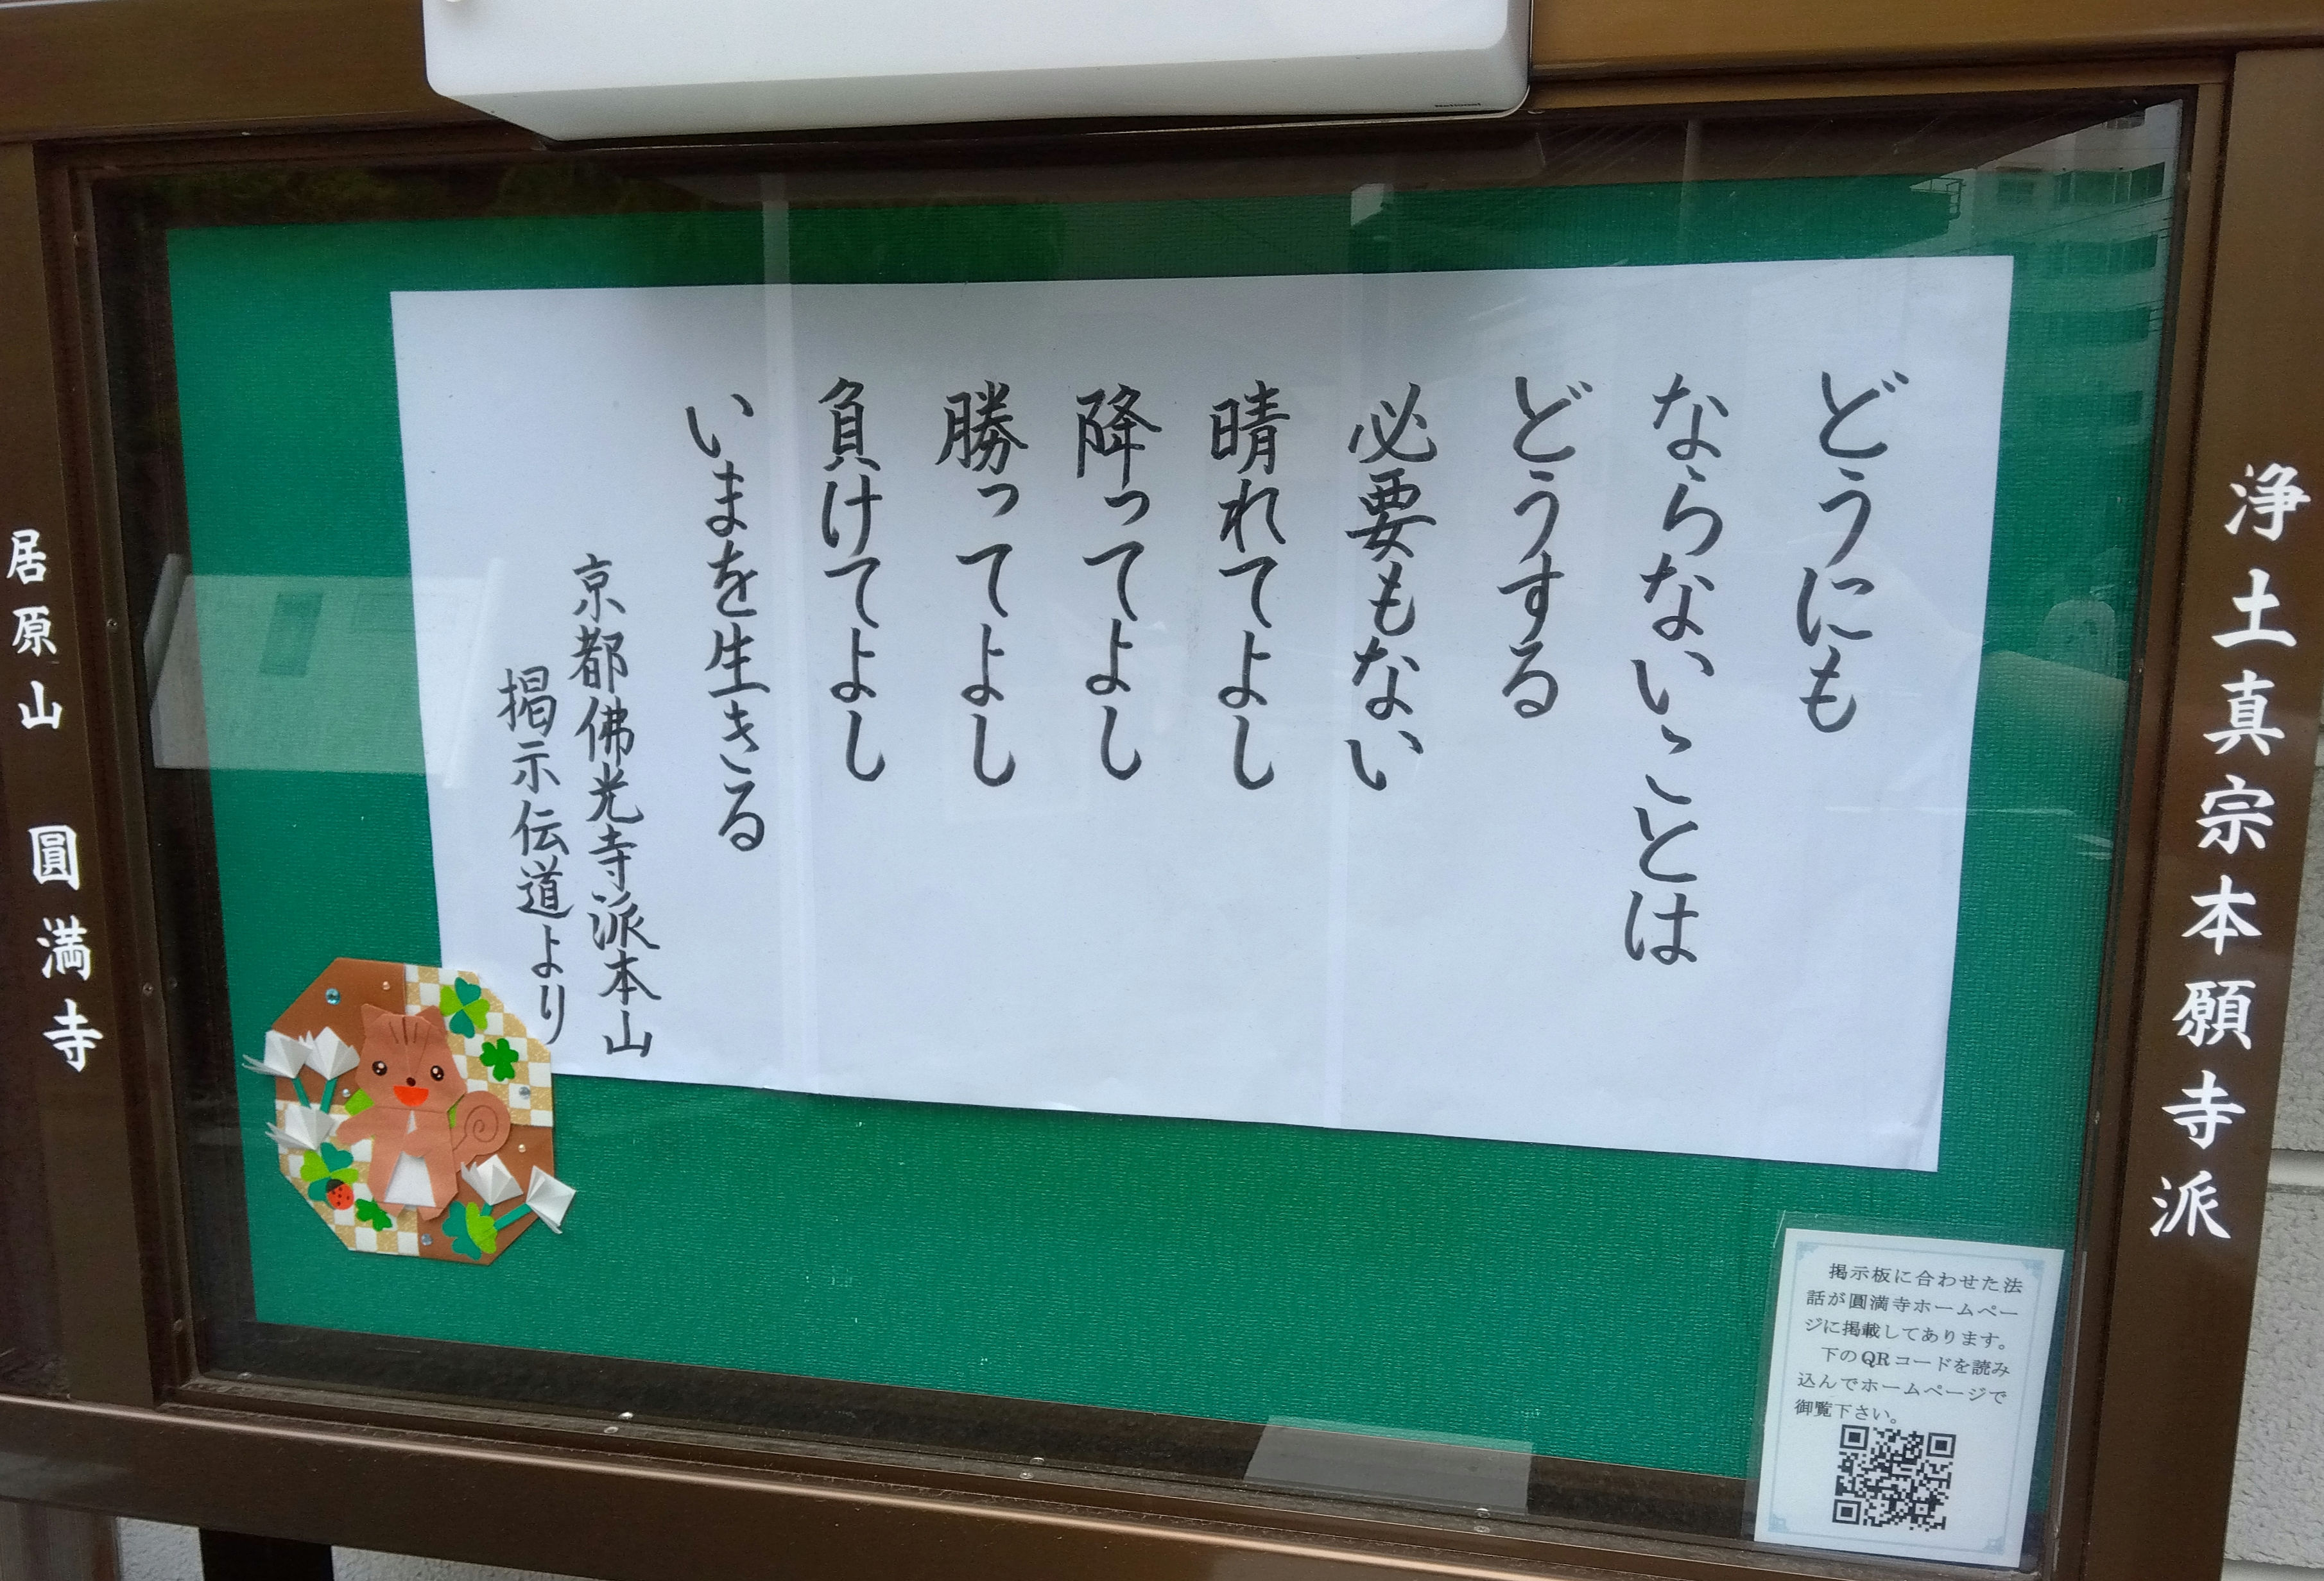 National
浄土真宗本願寺派
どうにも
ならないことは
どうする
必要もない
晴れてよし
降ってよし
勝ってよし
負けてよし
いまを生きる
京都佛光寺派本山
掲示伝道より
居原山 圓満寺
掲示板に合わせた法
話が圓満寺ホームペー
ジに掲載してあります。
下のQRコードを読み
込んでホームページで
御覧下さい。